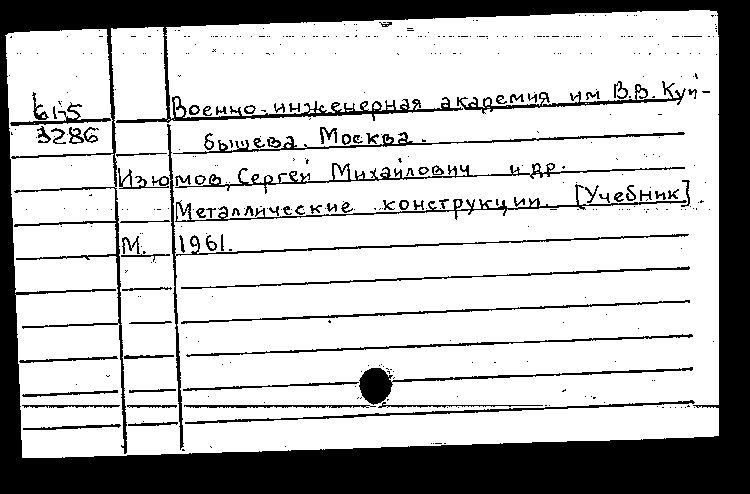 61-5 Военно-инженерная академия им В.В. Куй-
3286 бышева. Москва.
Изюмов, Сергей Михайлович и др.
Металлические конструкции. [Учебник].
М. 1961.